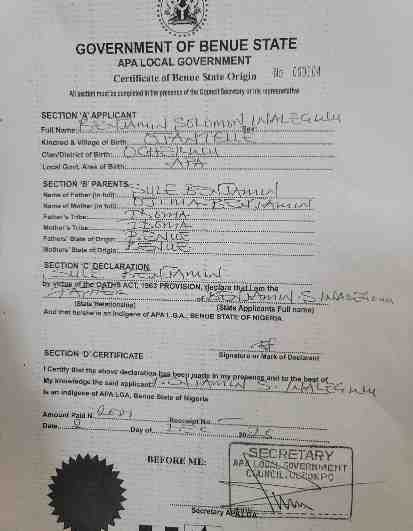 GOVERNMENT OF BENUE STATE
APA LOCAL GOVERNMENT
Certificate of Benue State Origin No
All section must be completed in the presence of the Council Secretary or his representative
SECTION 'A' APPLICANT
Full Name: BENJAMIN SOLOMON INALEGWU Sex:
Kindred & Village of Birth
Clan/District of Birth:
Local Govt. Area of Birth: APA
SECTION 'B' PARENTS
Name of Father (in full): SULE BENJAMIN
Name of Mother (in full): BENJAMIN
Father's Tribe: IDOMA
Mother's Tribe: IDOMA
Fathers' State of Origin: BENUE
Mothers' State of Origin: BENUE
SECTION 'C' DECLARATION
SULE BENJAMIN
by virtue of the OATHS ACT, 1963 PROVISION, declare that I am the
of BENJAMIN S. INALEGWU
(State Relationship) (State Applicants Full name)
And that he/she is an indigene of APA L.G.A., BENUE STATE OF NIGERIA.
SECTION 'D' CERTIFICATE Signature or Mark of Declarant
I Certify that the above declaration has been made in my presence and to the best of
My knowledge the said applicant: BENJAMIN S. INALEGWU
is an indigene of APA LGA, Benue State of Nigeria
Amount Paid N Receipt No.
Date Day of 20
BEFORE ME:
SECRETARY
APA LOCAL GOVERNMENT
COUNCIL, UGBOKPO
Secretary APA LGA